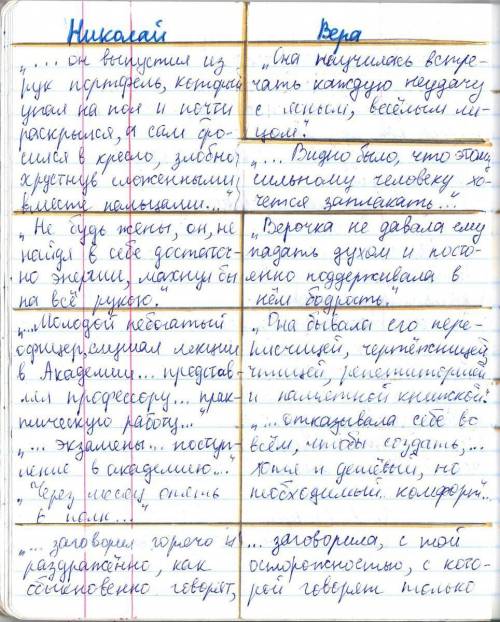 Николай
„... он выпустил из
рук портфель, который
упал на пол и почти
раскрылся, а сам бро-
сился в кресло, злобно
хрустнув сложенными
вместе пальцами..."
„Не будь жены, он, не
найдя в себе достаточ-
но энергии, махнул бы
на всё рукою."
„...Молодой небогатый
офицер, слушал лекции
в Академии... представ-
лял профессору... прак-
тическую работу..."
„... экзамены... поступ-
ление в академию..."
„Через месяц опять
в полк..."
„... заговорил горячо и
раздражённо, как
обыкновенно говорят,
Вера
„Она научилась встре-
чать каждую неудачу
с ясным, весёлым ли-
цом".
„... Видно было, что этому
сильному человеку хо-
чется заплакать..."
„Верочка не давала ему
падать духом и посто-
янно поддерживала в
нём бодрость."
„Она бывала его пере-
писчицей, чертёжницей,
чтицей, репетиторшей
и памятной книжкой."
„... отказывала себе во
всём, чтобы создать,...
хотя и дешёвый, но
необходимый комфорт..
... заговорила, с той
осторожностью, с кото-
рой говорят только